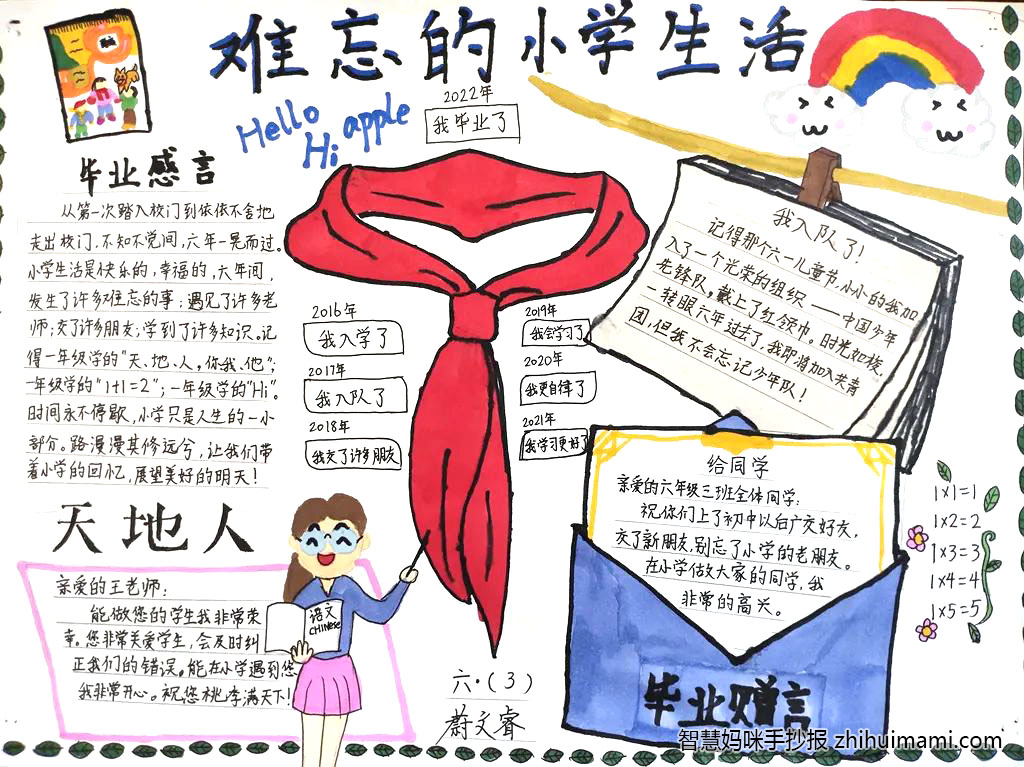 难忘的小学生活
Hello
Hi apple
2022年
我毕业了
毕业感言
从第一次踏入校门到依依不舍地
走出校门,不知不觉间,六年一晃而过。
小学生活是快乐的,幸福的,六年间,
发生了许多难忘的事;遇见了许多老
师;交了许多朋友;学到了许多知识。记
得一年级学的“天、地、人,你我、他”;
一年级学的“1+1=2”;一年级学的“Hi”。
时间永不停歇,小学只是人生的一小
部分。路漫漫其修远兮,让我们带
着小学的回忆,展望美好的明天!
天地人
2016年
我入学了
2017年
我入队了
2018年
我交了许多朋友
2019年
我会学习了
2020年
我更自律了
2021年
我学习更好了
我入队了!
记得那个六一儿童节,小小的我加
入了一个光荣的组织——中国少年
先锋队,戴上了红领巾。时光如梭,
一转眼六年过去了,我即将加入共青
团,但我不会忘记少年队!
给同学
亲爱的六年级三班全体同学:
祝你们上了初中以后广交好友,
交了新朋友,别忘了小学的老朋友。
在小学做大家的同学,我
非常的高兴。
毕业赠言
1×1=1
1×2=2
1×3=3
1×4=4
1×5=5
亲爱的王老师:
能做您的学生我非常荣
幸。您非常关爱学生,会及时纠
正我们的错误。能在小学遇到您
我非常开心。祝您桃李满天下!
语文
CHINese
六·(3)
蔚文睿
智慧妈咪手抄报 zhihuimami.com